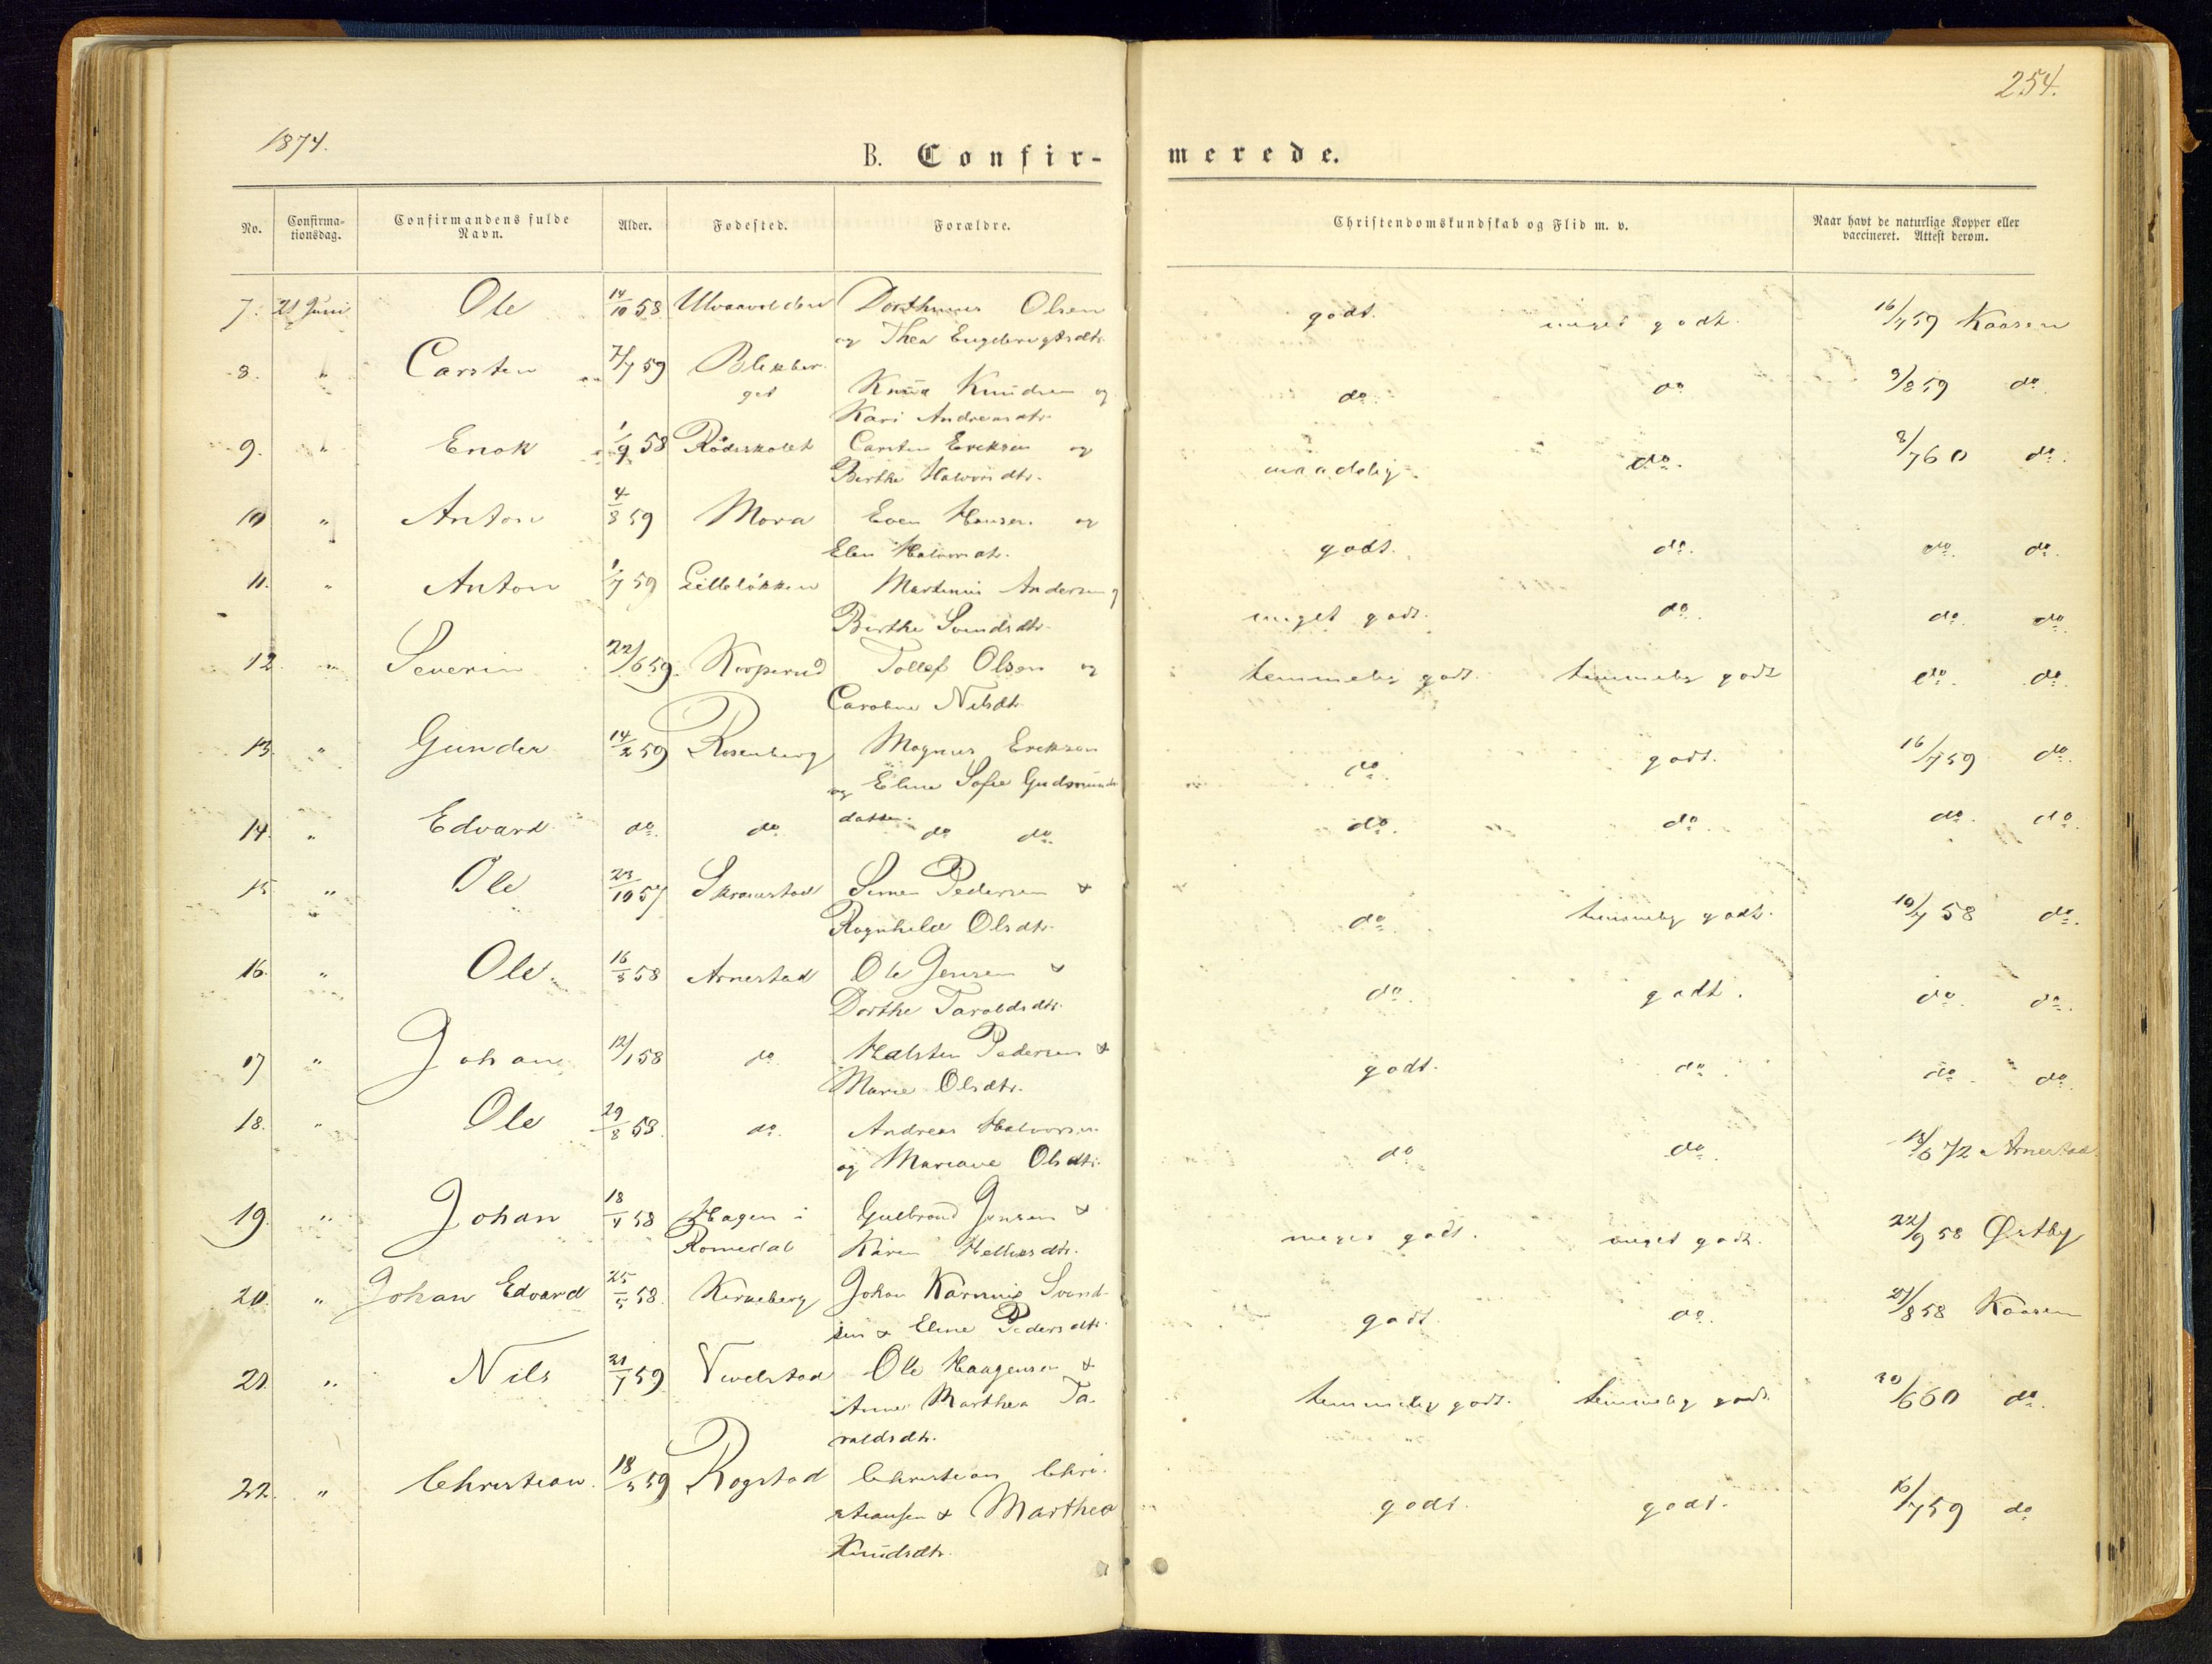 254.
1874.
B. Confir- merede.
No. Confirma-tionsdag. Confirmandens fulde Navn. Alder. Fødested. Forældre. Christendomskundskab og Flid m. v. Naar havt de naturlige Kopper eller vaccineret. Attest derom.
7. 21 Juni Ole 14/10 58 Dorthinus Olsen godt. meget godt. 16/7 59 Kaasen
og Thea Engebrigtsdtr.
8. " Carsten 7/7 59 Blekber- do. do 9/8 59 do.
get Knud Knudsen og
Kari Andreasdtr.
9. " Enok 1/9 58 Rödsskolet Carsten Eriksen og maadelig. do. 8/7 60 do.
Berthe Halvorsdtr.
10 " Anton 4/3 59 Mora Even Hansen og godt. do. do. do.
Elen Halvorsdtr.
11. " Anton 1/7 59 Lillelökken Martinius Andersen og meget godt. do. do. do.
Berthe Svendsdtr.
12. " Severin 22/6 59. Korperud Tollef Olsen og temmelig godt. temmelig godt do. do.
Caroline Nilsdtr.
13. " Gunder 14/2 59 Rosenberg Magnus Eriksen do. godt. 16/7 59 do.
og Eline Sofie Gudmunds
datter.
14. " Edvard do. do. do do. do. do. do. do.
15 " Ole 23/10 57 Skramstad Simen Pedersen & do. temmelig godt. 10/7 58 do.
Ragnhild Olsdtr.
16. " Ole. 16/3 58 Arnestad Ole Jensen & do. godt. do. do.
Dorthe Taraldsdtr.
17 " Johan 12/1 58 do. Halsten Pedersen & godt. do. do. do.
Marie Olsdtr.
18. " Ole 29/8 58. do. Andreas Halvorsen do. do. 18/6 72 Arnestad
og Mariane Olsdtr.
19. " Johan 18/4 58 Hagen i Gulbrand Jensen & meget godt. meget godt. 22/9 58 Østby
Romedal Karen Helliksdtr.
20. " Johan Edvard 25/5 58. Kirkeberg Johan Svend- godt. do. 27/8 58 Kaasen
sen & Eline Pedersdtr.
21. " Nils 21/1 59. Vivelstad Ole Haagensen & temmelig godt. temmelig godt. 20/6 60 do.
Anne Marthea Ta-
raldsdtr.
22. " Christian. 18/3 59 Rogstad Christian Chri- godt. godt. 16/7 59 do
stiansen & Marthea
Knudsdtr.